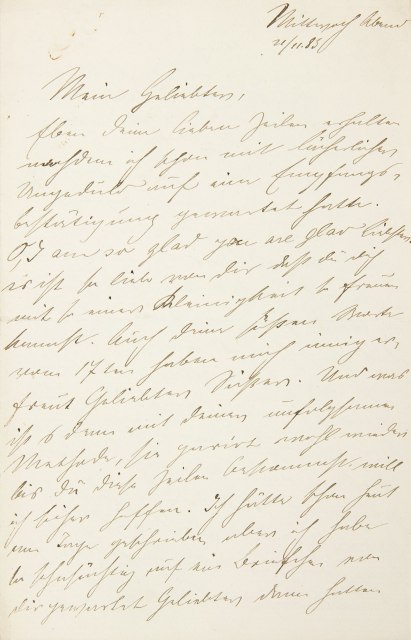 Mittwoch Abend
21/11.83
Mein Geliebter,
Eben deine lieben Zeilen erhalten
nachdem ich schon mit lächerlicher
Ungeduld auf eine Empfangs-
bestätigung gewartet hatte.
O I am so glad you are glad liebster
es ist so lieb von dir daß du dich
mit so einer Kleinigkeit so freuen
kannst. Auch deine süßen Worte
vom 17ten haben mich innig er-
freut Geliebter Süßer. Und was
ist es denn mit deinem
wohl wieder
bis du diese Zeilen bekommst will
ich sicher hoffen. Ich hätte schon heut
am Tage geschrieben aber ich habe
so sehnsüchtig auf ein Briefchen von
dir gewartet Geliebter, dann hatten